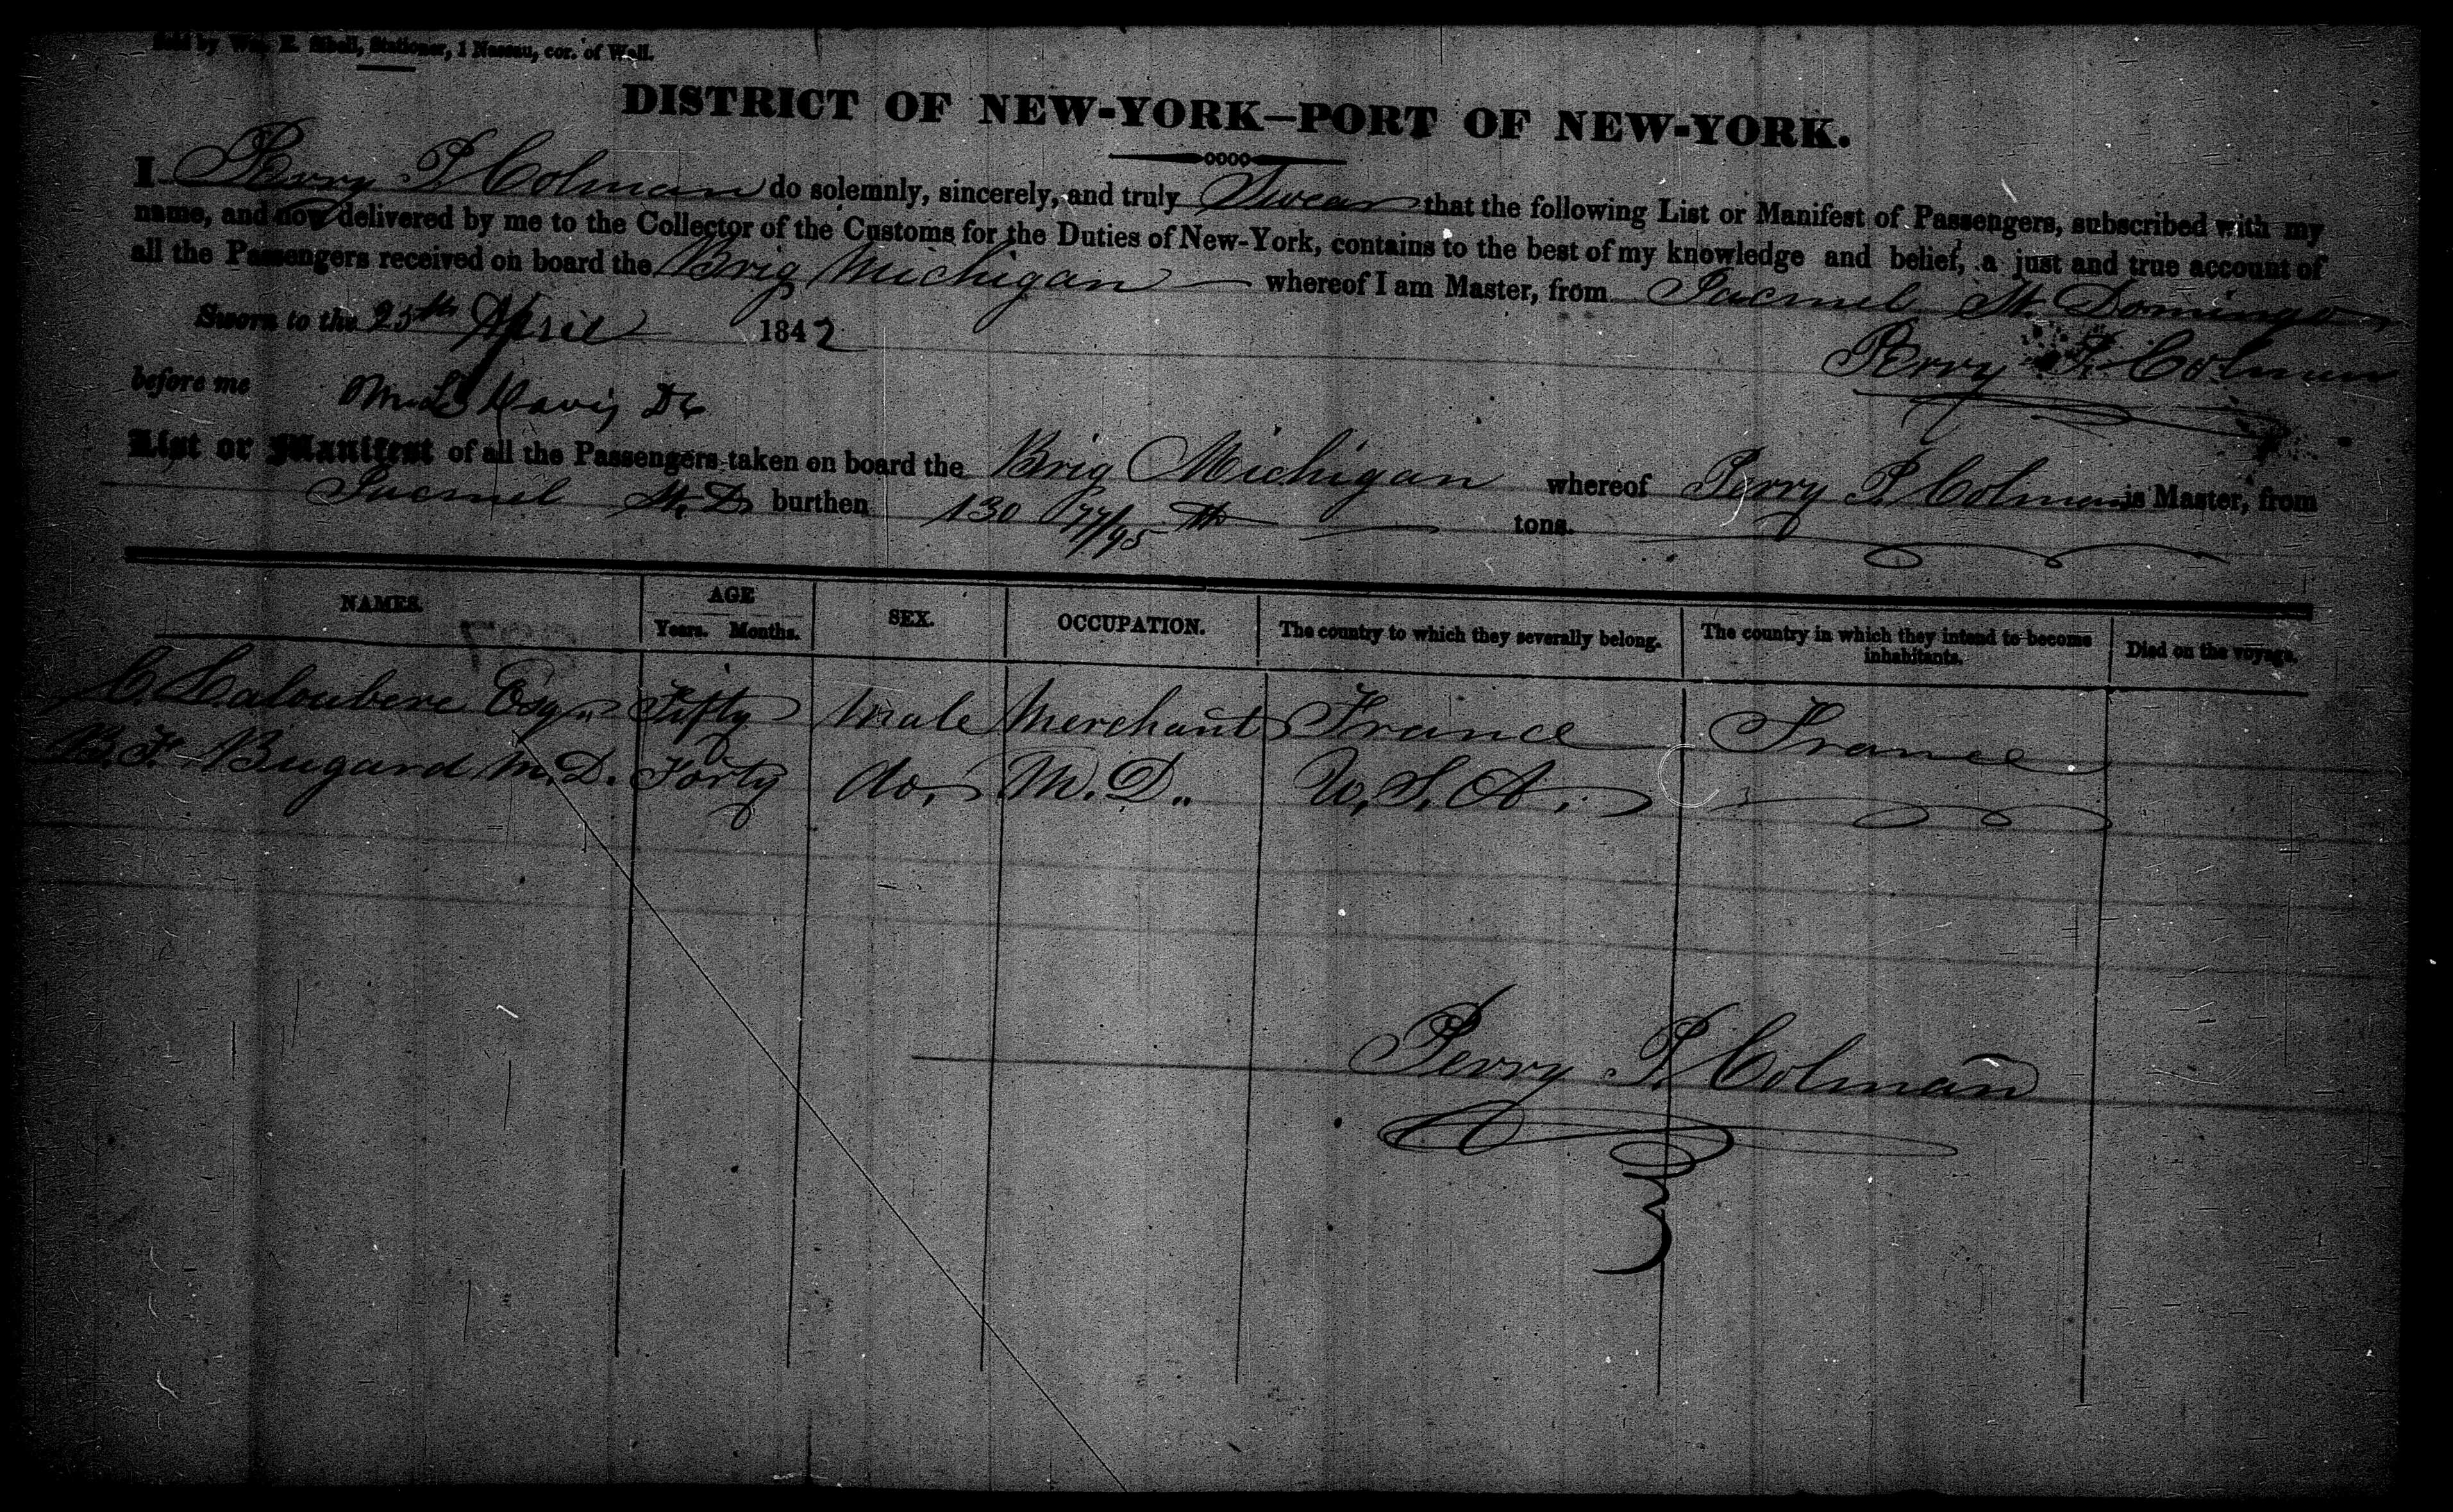 Sold by Wm. E. Sibell, Stationer, 1 Nassau, cor. of Wall.
DISTRICT OF NEW-YORK—PORT OF NEW-YORK.
I Perry P. Colman do solemnly, sincerely, and truly Swear that the following List or Manifest of Passengers, subscribed with my
name, and now delivered by me to the Collector of the Customs for the Duties of New-York, contains to the best of my knowledge and belief, a just and true account of
all the Passengers received on board the Brig Michigan whereof I am Master, from Jacmel St. Domingo
Sworn to the 25th April 1842
Perry P. Colman
before me M. L. Davis
List or Manifest of all the Passengers taken on board the Brig Michigan whereof Perry P. Colman is Master, from
Jacmel St. D burthen 130 77/95 tons.
NAMES. AGE SEX. OCCUPATION. The country to which they severally belong. The country in which they intend to become inhabitants. Died on the voyage.
Years. Months.
C. Laloubere Esqr. Fifty Male Merchant France France
B. F. Bugard M.D. Forty do. M.D. U.S.A.
Perry P. Colman